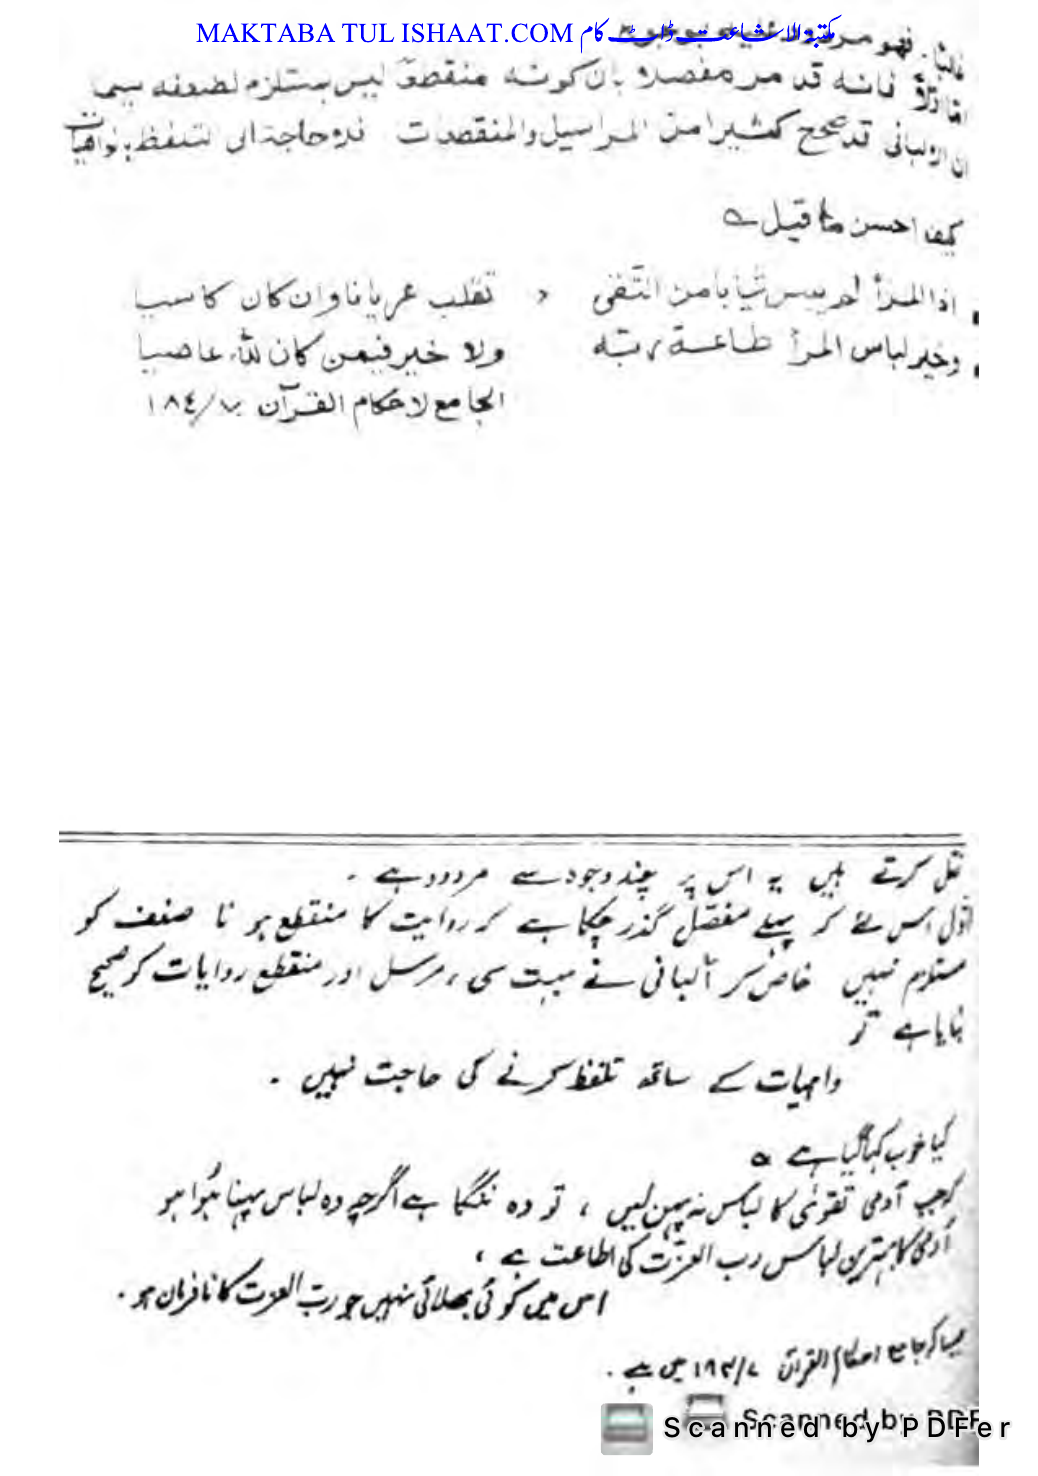 MAKTABA TUL ISHAAT.COM مکتبۃ الاشاعت ڈاٹ کام
فانه قد مر مفصلا بان كونه منقطعا ليس بمستلزم لضعفه سيما
ان الالبانى قد صحح كثيرا من المراسيل والمنقطعات فلا حاجة الى التلفظ بواهيات
كيف احسن ما قيل ے
اذا المرأ لم يلبس ثيابا من التقى تقلب عريانا وان كان كاسيا
وخير لباس المرأ طاعة ربه ولا خير فيمن كان لله عاصيا
الجامع لاحكام القرآن ۷/۱۸٤
نقل کرتے ہیں یہ اس پر چند وجود سے مردود ہے ۔
اوّل اس لئے کہ پہلے مفصّل گذر چکا ہے کہ روایت کا منقطع ہونا ضعف کو
مستلزم نہیں خاص کر البانی نے بہت سی ، مرسل اور منقطع روایات کو صحیح
بنایا ہے تو
واہیات کے ساتھ تلفظ کرنے کی حاجت نہیں ۔
کیا خوب کہا گیا ہے ے
کہ جب آدمی تقوٰی کا لباس نہ پہن لیں ، تو وہ ننگا ہے اگرچہ وہ لباس پہنا ہُوا ہو
آدمی کا بہترین لباس رب العزّت کی اطاعت ہے ،
اس میں کوئی بھلائی نہیں جو ربّ العزت کا نافرمان ہو ۔
جیسا کہ جامع احکام القرآن ۷/۱۸۴ میں ہے ۔
Scanned by PDF
Scanned by PDFer